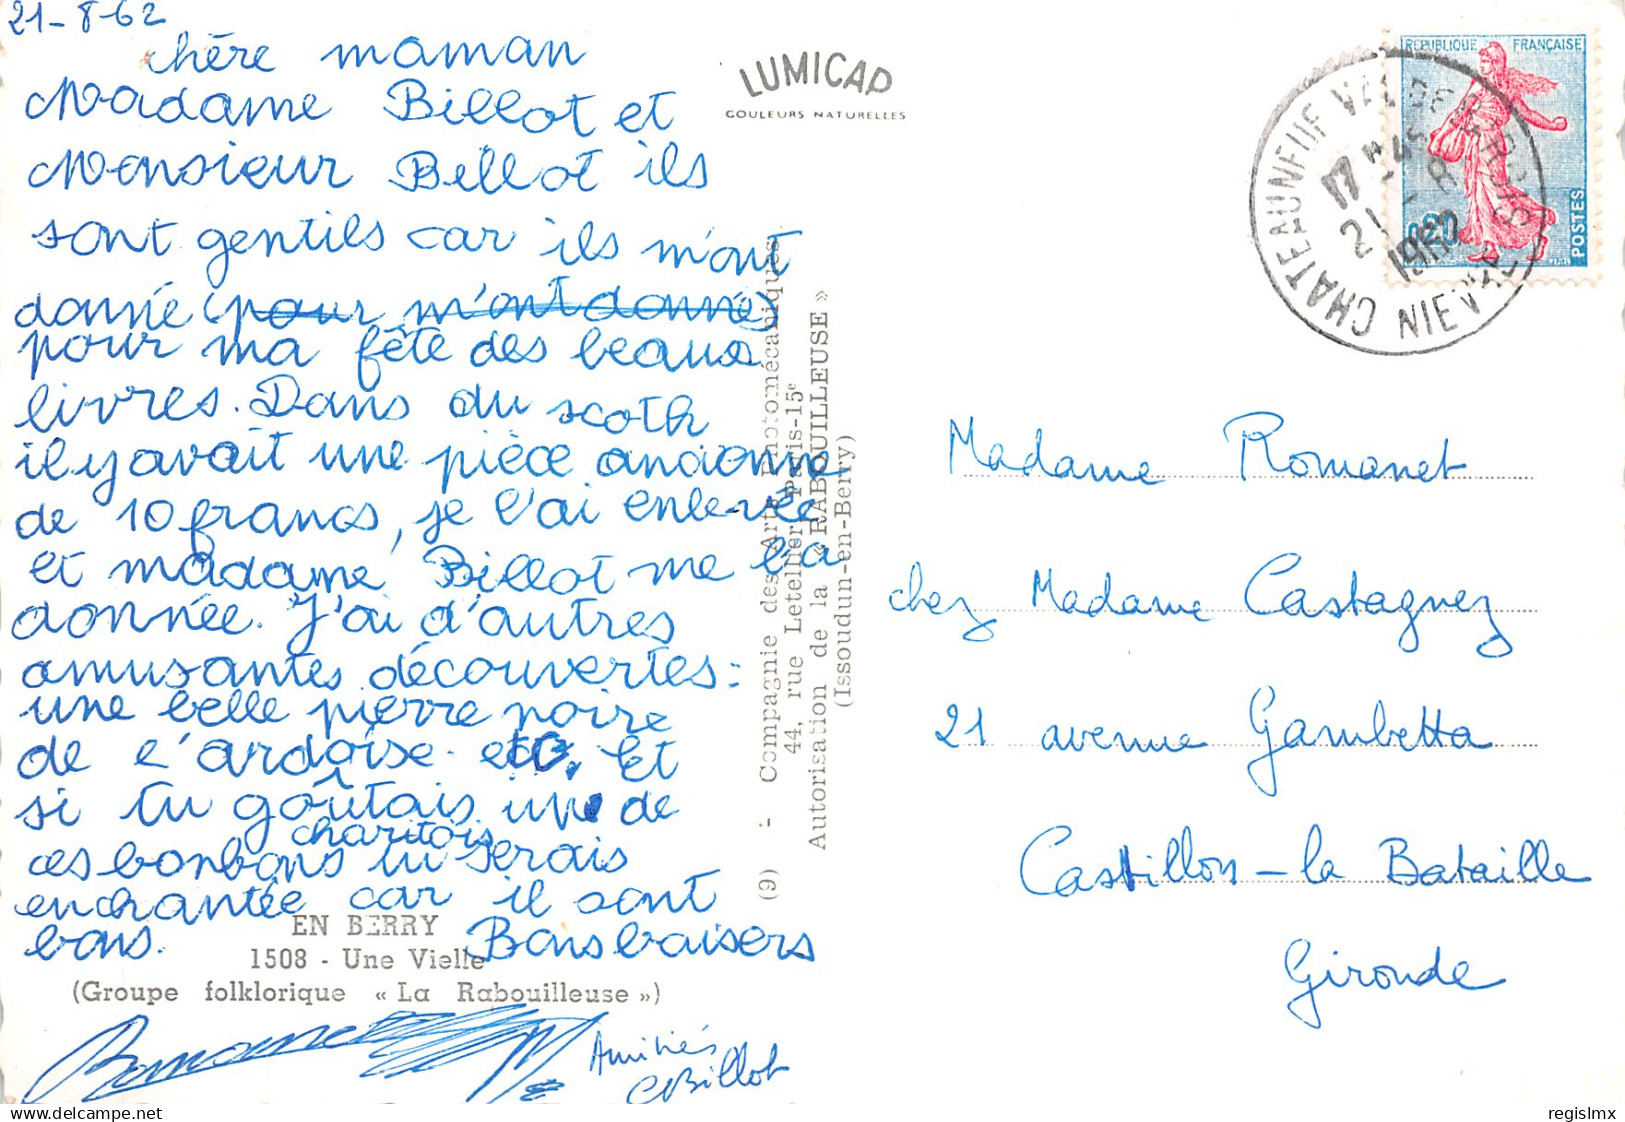 21-8-62
chère maman
Madame Billot et
Monsieur Bellot ils
sont gentils car ils m'ont
donné (pour m'ont donné)
pour ma fête des beaux
livres. Dans du scoth
il y avait une pièce ancienne
de 10 francs, je l'ai enlevée
et madame Billot me l'a
donnée. J'ai d'autres
amusantes découvertes :
une belle pierre noire
de l'ardoise. etc. Et
si tu goûtais une de
charitois
ces bonbons tu serais
enchantée car il sont
bons. Bons baisers
Romanet
Amitiés
CBillot
EN BERRY
1508 - Une Vielle
(Groupe folklorique « La Rabouilleuse »)
LUMICAP
COULEURS NATURELLES
(9) - Compagnie des Arts Photomécaniques
44, rue Letellier, Paris-15e
Autorisation de la « RABOUILLEUSE »
(Issoudun-en-Berry)
REPUBLIQUE FRANÇAISE
0,20
POSTES
CHATEAUNEUF VAL DE BARGIS
17 H 45
21 - 8
1962
NIEVRE
Madame Romanet
chez Madame Castagnez
21 avenue Gambetta
Castillon-la Bataille
Gironde
delcampe.net
regislmx